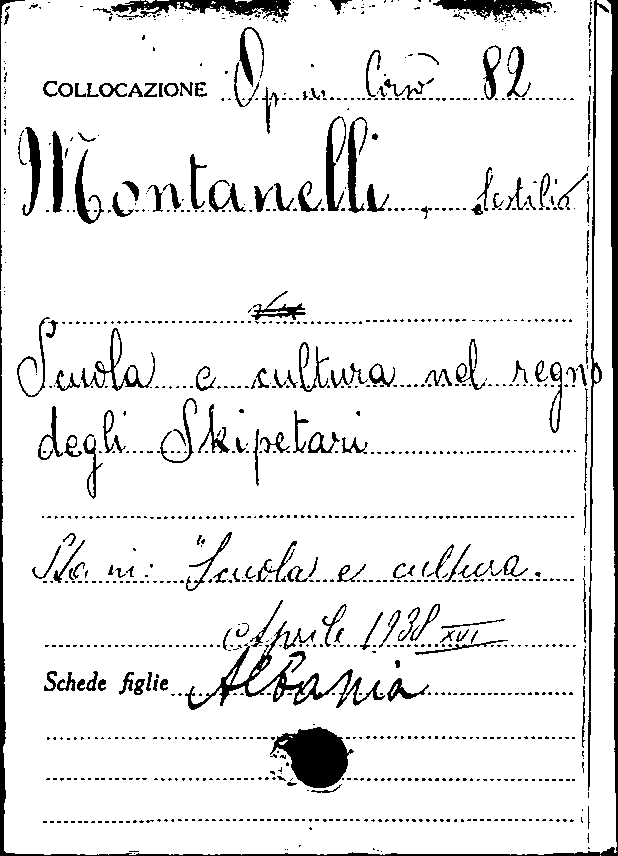 COLLOCAZIONE Op. in Corso 82
Montanelli, Sestilio
Scuola e cultura nel regno
degli Skipetari
Sta in: "Scuola e cultura.
Aprile 1938 XVI
Schede figlie Albania